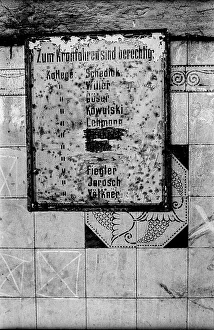 Zum Kranfahren sind berechtigt:
Kollege Schedlok
" Wüler
" Guser
" Kowalski
" Lehmann
"
"
"
" Fiegler
" Jarosch
" Völkner